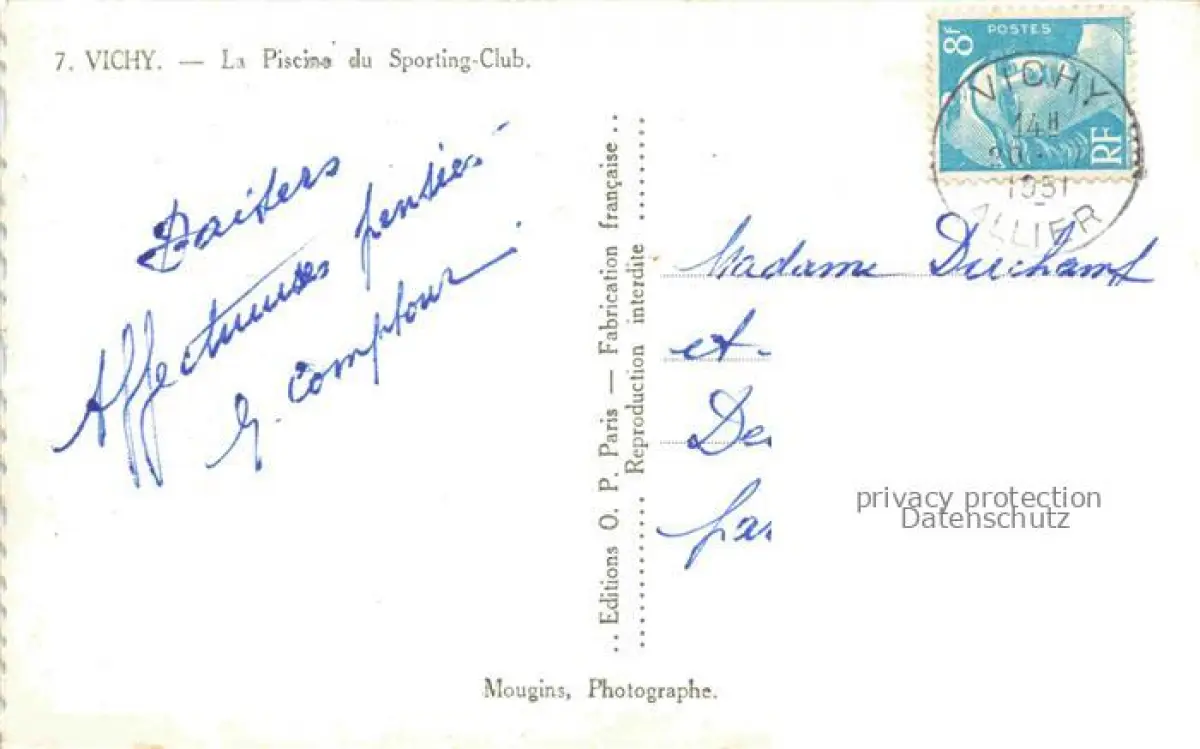 7. VICHY. — La Piscine du Sporting-Club.
Baisers
Affectueuses pensées
G. Comptour
.. Editions O. P. Paris — Fabrication française ..
Reproduction interdite
8F
POSTES
RF
VICHY
14H
1951
ALLIER
Madame Duchamp
et
De
par
privacy protection
Datenschutz
Mougins, Photographe.